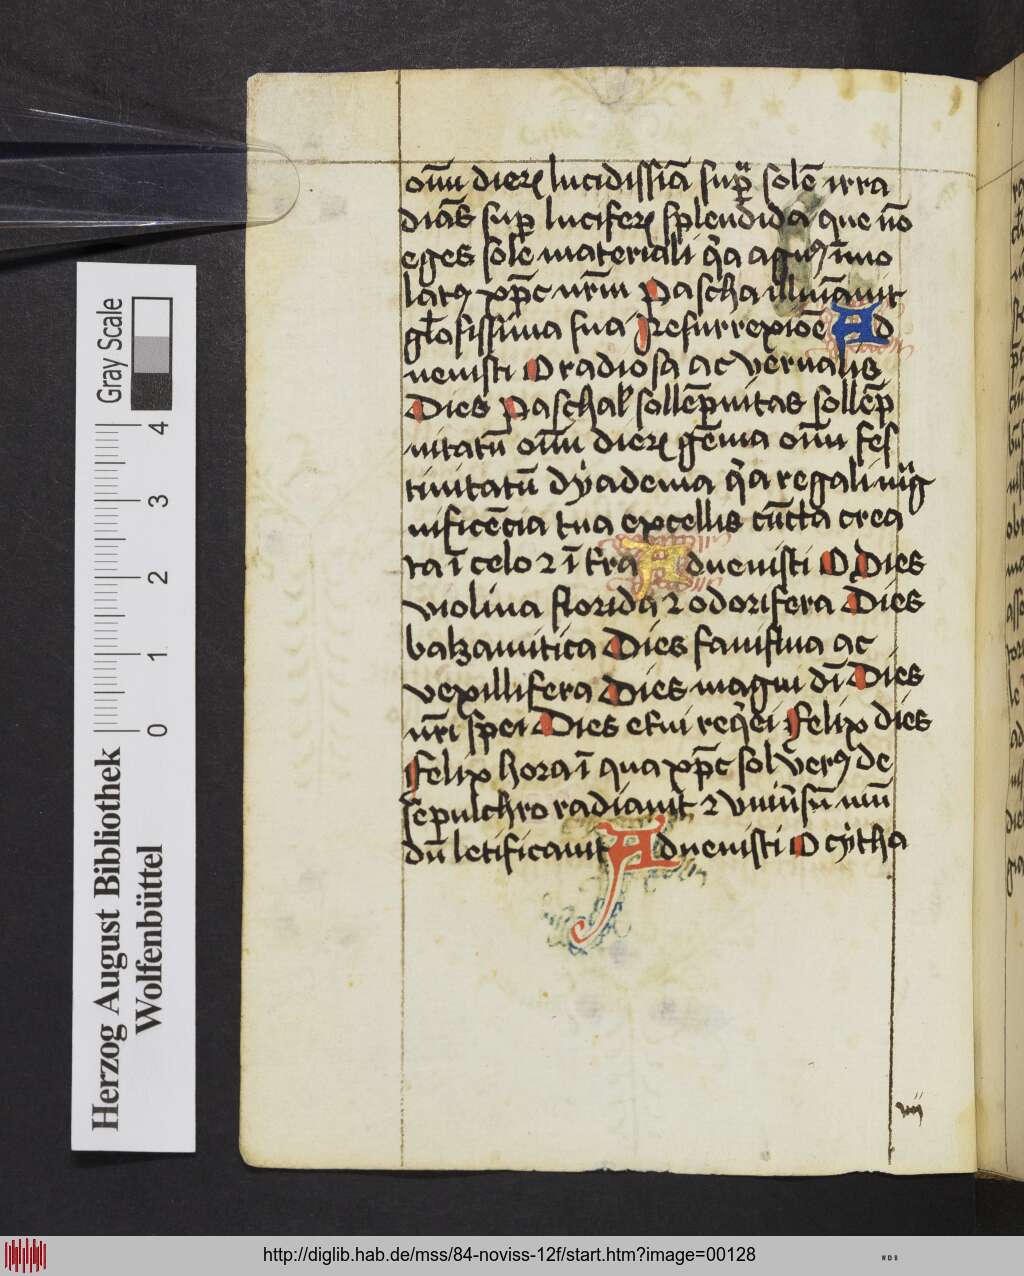 om̄ dieꝝ lucidissīa suꝑ solē irra
diās suꝑ luciferꝝ splendida que nō
eges sole materiali qͥa agnꝰ īmo
latꝰ xp̄c nr̄m Pascha illuīauit
gl̄osissima sua Resurrexiōe Ad
uenisti O radiosa ac vernalis
Dies Paschal̕ sollēpnitas sollēp
nitatū om̄ dieꝝ gēma om̄ fes
tiuitatū dyadema qͥa regali mͣg
nificēcia tua excellis cūcta crea
ta ī celo ⁊ ī t̄ra Aduenisti O Dies
violina florida ⁊ odorifera Dies
balzamitica Dies fauiflua ac
vexillifera Dies magni dī Dies
nr̄i spei Dies et̕ni reqͥei Felix dies
Felix hora ī qua xp̄c sol verꝰ de
sepulchro radiauit ⁊ vniūsū mū
dū letificauit Aduenisti O cytha
Herzog August Bibliothek
Wolfenbüttel
Gray Scale
0 1 2 3 4
http://diglib.hab.de/mss/84-noviss-12f/start.htm?image=00128